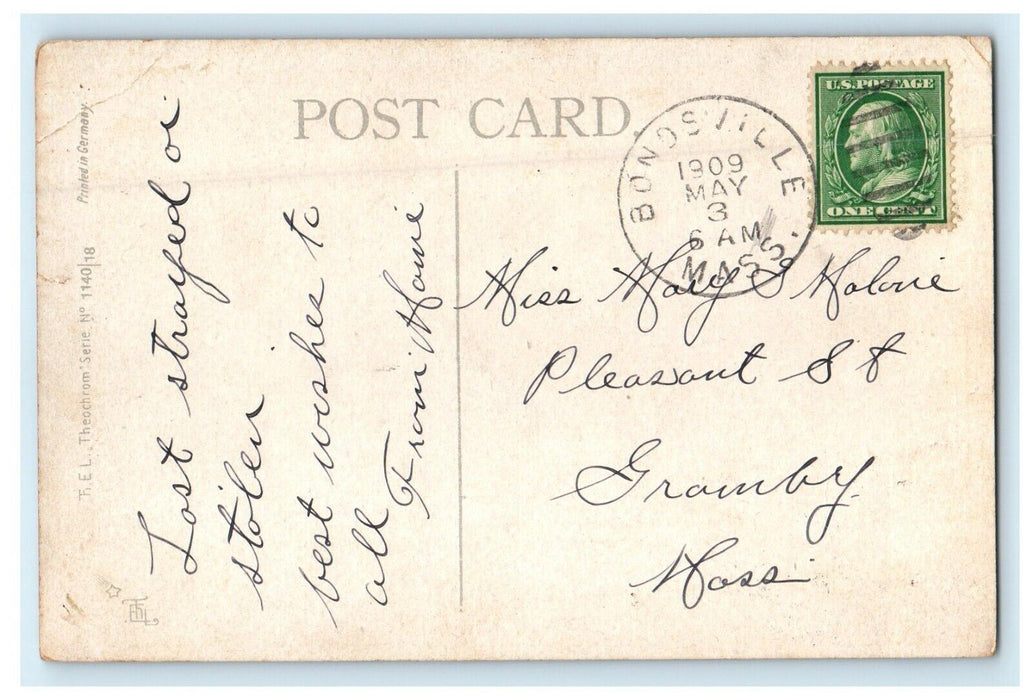 POST CARD.
U.S. POSTAGE
ONE CENT
BONDSVILLE
1909
MAY
3
6 AM
MASS.
Miss Mary S Malone
Pleasant St
Gramby
Mass
Lost strayed or
stolen
best wishes to
all
From
Printed in Germany.
T.E.L. „Theochrom" Serie Nº 1140|18